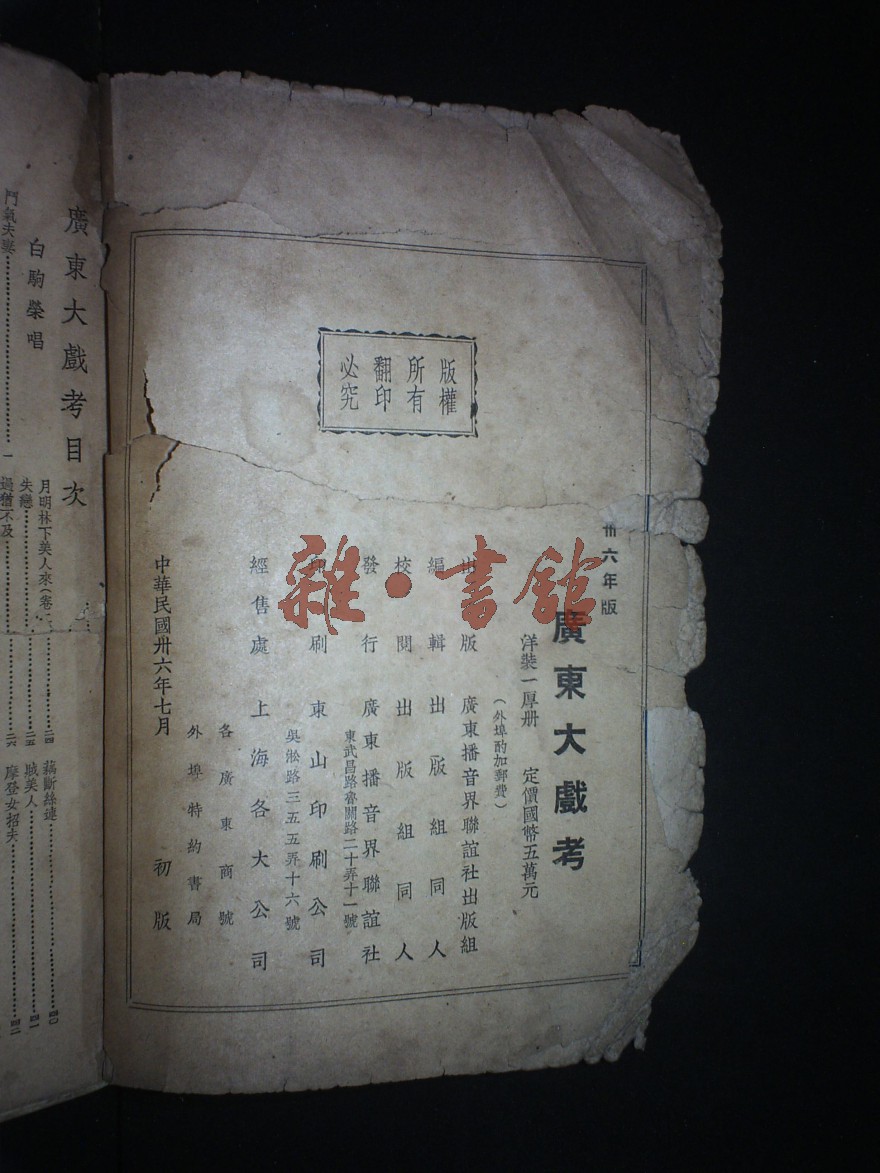 版權
所有
翻印
必究
卅六年版
廣東大戲考
洋裝一厚册 定價國幣五萬元
(外埠酌加郵費)
出版 廣東播音界聯誼社出版組
編輯 出版組同人
校閱 出版組同人
發行 廣東播音界聯誼社
東武昌路魯關路二十弄十一號
印刷 東山印刷公司
吳淞路三五五弄十六號
經售處 上海各大公司
各廣東商號
外埠特約書局
中華民國卅六年七月 初版
雜·書館
廣東大戲考目次
白駒榮唱
鬥氣夫妻 一
月明林下美人來(卷 二四
失戀 二五
過猶不及 二六
藕斷絲連 四〇
戙美人 四一
摩登女招夫 四二